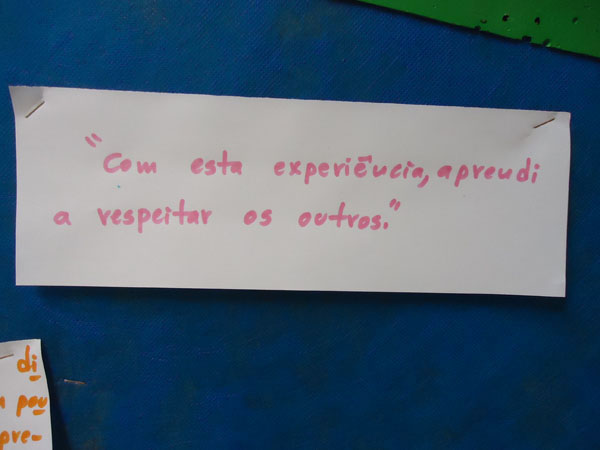 "Com esta experiência, aprendi
a respeitar os outros."
di
pou
pre-